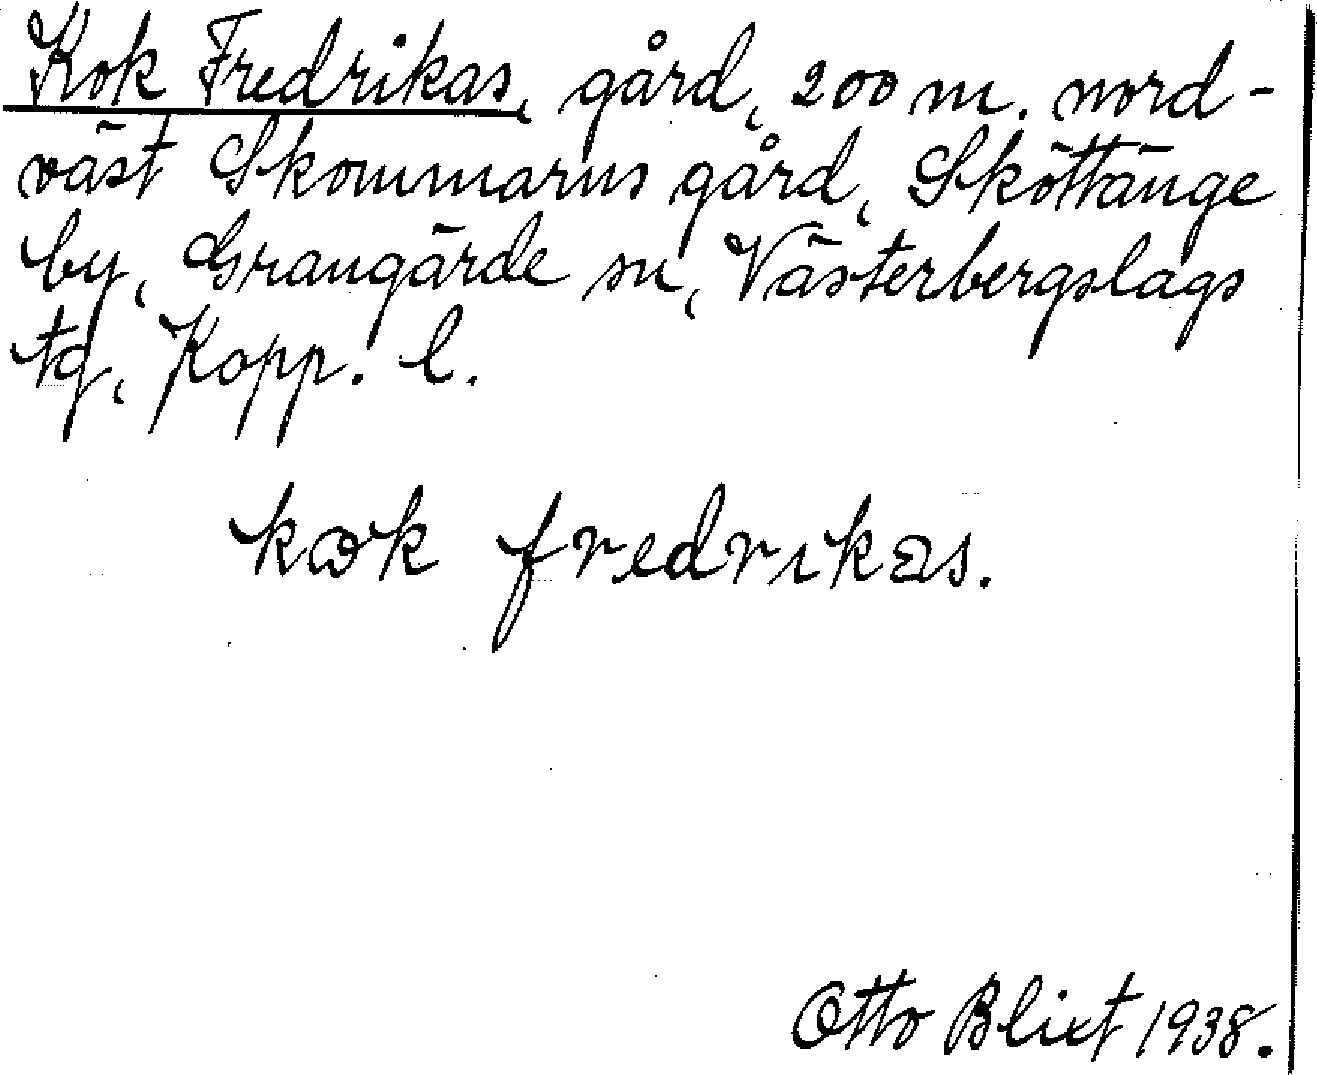 Kok Fredrikas, gård, 200 m. nord-
väst Skommarus gård, Sköttänge
by, Grangärde sn, Västerbergslags
tg, Kopp. l.
kok fredrıkas.
Otto Blixt 1938.